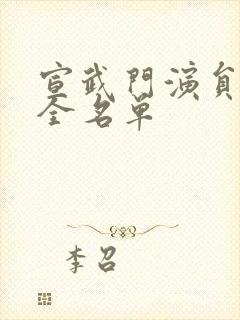 宣武門演員
全名單
李召